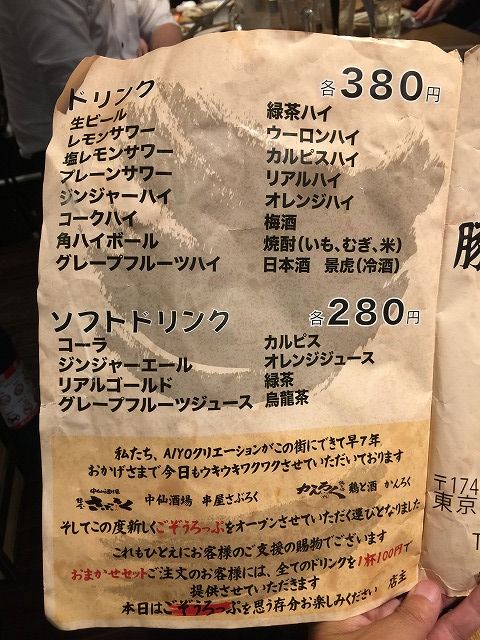 ドリンク 各380円
生ビール
レモンサワー
塩レモンサワー
プレーンサワー
ジンジャーハイ
コークハイ
角ハイボール
グレープフルーツハイ
緑茶ハイ
ウーロンハイ
カルピスハイ
リアルハイ
オレンジハイ
梅酒
焼酎（いも、むぎ、米）
日本酒 景虎（冷酒）
ソフトドリンク 各280円
コーラ
ジンジャーエール
リアルゴールド
グレープフルーツジュース
カルピス
オレンジジュース
緑茶
烏龍茶
私たち、AIYOクリエーションがこの街にできて早7年
おかげさまで今日もウキウキワクワクさせていただいております
中仙酒場 串屋さぶろく 鶏と酒 かんろく
そしてこの度新しくごぞうろっぷをオープンさせていただく運びとなりました
これもひとえにお客様のご支援の賜物でございます
おまかせセットご注文のお客様には、全てのドリンクを1杯100円で
提供させていただきます
本日はごぞうろっぷを思う存分お楽しみください 店主
豚
〒174
東京
T